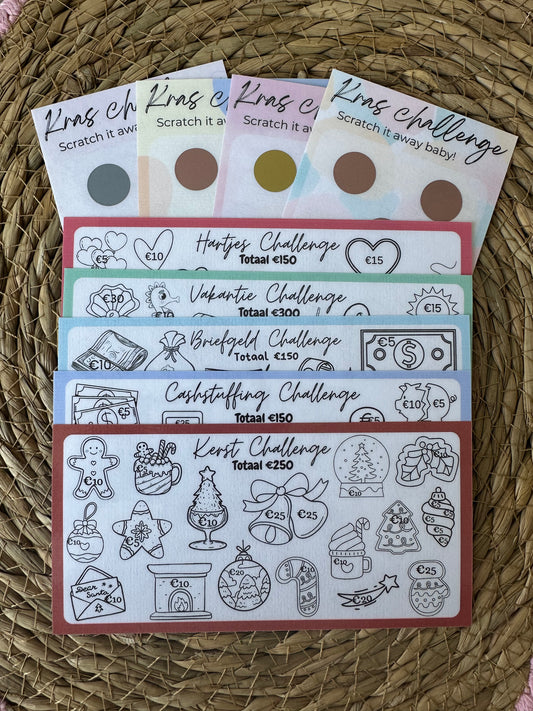 Kras cha
Scratch it away
Kras cha
Scratch it aw
Kras cha
Scratch it a
Kras challenge
Scratch it away baby!
Hartjes Challenge
Totaal €150
€5 €10 €15
Vakantie Challenge
Totaal €300
€30 €15
Briefgeld Challenge
Totaal €150
€10 €5 $
Cashstuffing Challenge
Totaal €150
€5 €5 €10 €5
Kerst Challenge
Totaal €250
€10 €10 €10 €10
€10 €5 €10 €25 €25 €10 €5 €5 €5
€10
Dear Santa €10 €10 €20 €10 €10 €20 €25